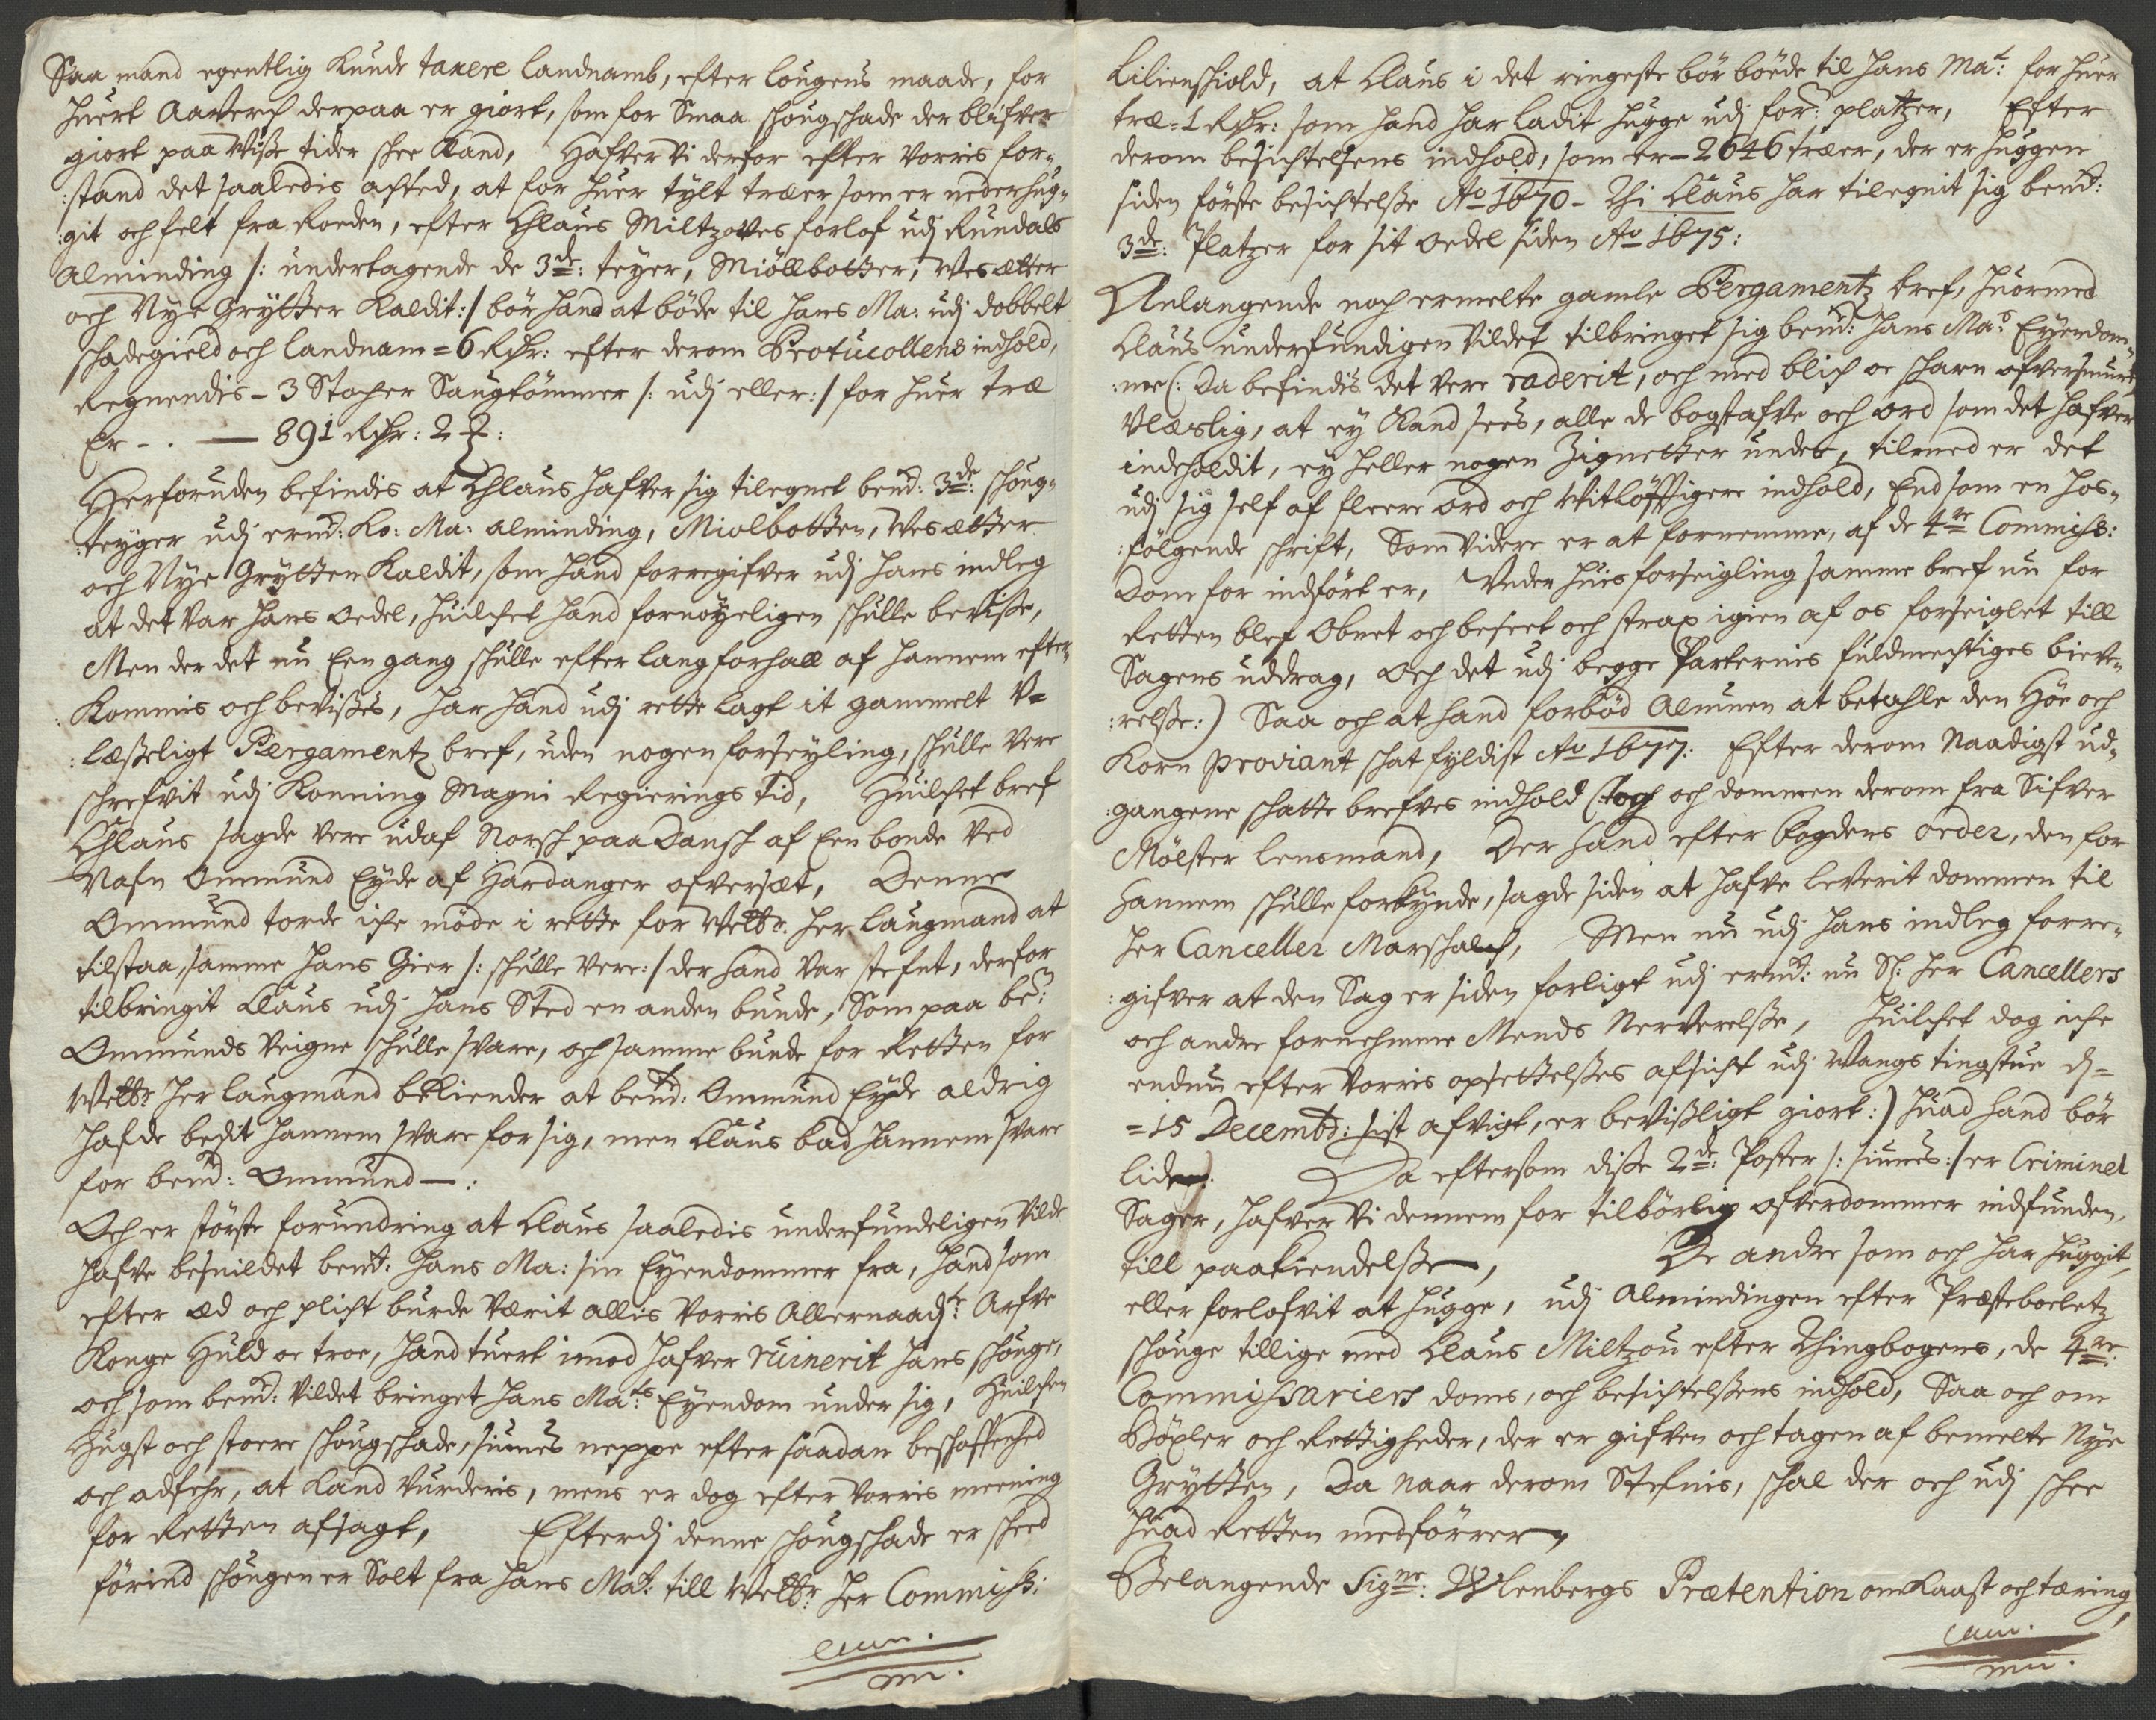 Saa mand egentlig kunde taxere landnamb, efter lougens maade, for
huert Aaverch derpaa er giort, som for Smaa schougschade der blifver
giort paa wisse tider schee kand, Hafver vi derfor efter vorris for-
:stand det saaledis acted, at for huer tylt træer som er nederhug-
:git och felt fra Roeden, efter Chlaus Miltzoves forlof udj Rundals
Alminding /: undertagende de 3de: teyer, Miöllbotter, Wesætter
och Nye Grytter kaldit:/ bör hand at böde til hans Ma: udj dobbelt
schadegield och landnam = 6 Rdr: efter derom Protucollens indhold,
Regnendis - 3 Stocher Saugtömmer /: udj eller :/ for huer træ
Er - . — 891 Rdr: 2 ʒ:
Herforuden befindis at Chlaus hafver sig tilegnet bemd: 3de: schoug-
:teyger udj ermd: Ko: Ma: alminding, Miolbotten, Wesætter
och Nye Grytten kaldit, som hand forregifver udj hans indleg
at det var hans oedel, huilchet hand fornöyeligen schulle bevisse,
Men der det nu Een gang schulle efter lang forhall af hannem efter-
:kommis och bevisses, har hand udj rette lagt it gammelt V-
:læsseligt Pergamentz bref, uden nogen forseyling, schulle vere
schrefvit udj Konning Magni Regierings tid, Huilchet bref
Chlaus sagde vere udaf Norsch paa Dansch af Een bonde ved
Nafn Ommund Eyde af Hardanger ofversæt, Denne
Ommund torde iche möde i rette for Welbr: her laugmand at
tilstaa, samme hans Gier /: schulle vere:/ der hand var stefnt, derfor
tilbringit Claus udj hans Sted en anden bunde, Som paa be:
Ommunds veigne schulle svare, och samme bunde for Retten for
Welbr her laugmand bekiender at bemd: Ommund Eyde aldrig
hafde bedit hannem svare for sig, men Claus bad hannem svare
for bemd: Ommund — :
Och er störste forundring at Claus saaledis underfundeligen vilde
hafve besnildet bemt: Hans Ma: sin Eyendommer fra, hand som
efter æd och plicht burde værit allis vorris Allernaadste Arfve
Konge Huld oc troe, hand tuert imod hafver ruinerit hans schouge,
och som bemd: vildet bringet hans Mats Eyendom under sig, Huilchen
Hugst och stoere schougschade, siunes neppe efter saadan beschaffenhed
och adfehr, at kand vurderis, mens er dog efter vorris meening
for Retten afsagt, Efterdj denne schougschade er scheed
förind schougen er Solt fra hans Mat: till Welbr her Commiss:
Lilienschiold, at Claus i det ringeste bör böede til hans Mat: for huer
træ = 1 Rdr: som hand har ladit hugge udj for: platzer, Efter
derom besichtelsens indhold, som er - 2646 træer, der er huggen
siden förste besichtelsse Ao 1670 - Thi Claus har tilegnit sig bemd:
3de: Platzer for sit oedel siden Ao 1675:
Anlangende noch ermelte gamle Pergamentz bref, huormed
Claus underfundigen vildet tilbringet sig bemd: hans Mas Eyendom-
:me (: Da befindis det vere raderit, och med blich oc scharn ofversmurt
Vlæslig, at ey kand sees, alle de bogstafve och ord som det hafver
indeholdit, ey heller nogen Zignetter under, tilmed er det
udj sig self af fleere ord och vitlöfftigere indhold, End som en hos-
:fölgende schrift, Som videre er at fornemme, af de 4re Commiss:
Dom for indfört er, Under huis forseigling samme bref nu for
Retten blef Obnet och beseet och strax igien af os forseiglet till
Sagens uddrag, Och det udj begge Parternis fuldmechtiges bieve-
:relsse:) Saa och at hand forböd Almuen at betahle den Höe och
Korn proviant schat fyldist Ao 1677: Efter derom Naadigst ud-
:gangene schatte brefves indhold (: och dommen derom fra Sifver
Mölster lensmand, Der hand efter fogdens order, den for
hannem schulle forkynde, sagde siden at hafve leverit dommen til
her Canceller Marschalch, Men nu udj hans indleg forre-
:gifver at den Sag er siden forligt udj ermt: nu Sl: her Cancellers
och andre fornehmme Mends Nerverelsse, Huilchet dog iche
endnu efter vorris opsettelsses afsicht udj Wangs tingstue d-
= 15 Decembr: sist afvigt, er bevissligt giort:) huad hand bör
lide. Da eftersom disse 2de: Poster /: siunes:/ er Criminel
Sager, hafver vi dennem for tilbörlig ofverdommer indfunden,
till paakiendelsse, De andre som och har huggit,
eller forlofvit at hugge, udj Almindingen efter Præsteboeletz
schouge tillige med Claus Miltzou efter Thingbogens, de 4re:
Commissariers doms, och besichtelssens indhold, Saa och om
Böxler och Rettigheder, der er gifven och tagen af bemelte Nye
Grytten, Da naar derom Stefnis, schal der och udj schee
huad Retten medförrer,
Belangende Signr: Wlenbergs Prætention om Kaast och tæring,